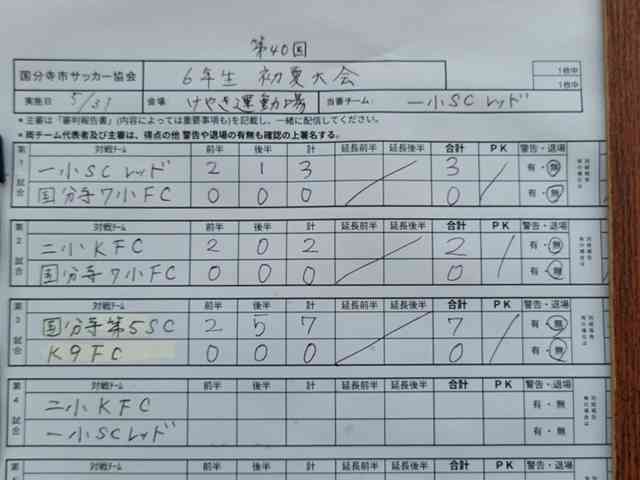 第40回
国分寺市サッカー協会 6年生 初夏大会 1枚中
1枚中
実施日 5/31 会場 けやき運動場 当番チーム: 一小SCレッド
*主審は「審判報告書」(内容によっては重要事項も)を記載し、一緒に配信してください。
*両チーム代表者及び主審は、得点の他 警告や退場の有無も確認の上署名する。
第1試合 対戦チーム 前半 後半 計 延長前半 延長後半 合計 PK 警告・退場
一小SCレッド 2 1 3 3 有・無
国分寺7小FC 0 0 0 0 有・無
第2試合 対戦チーム 前半 後半 計 延長前半 延長後半 合計 PK 警告・退場
二小KFC 2 0 2 2 有・無
国分寺7小FC 0 0 0 0 有・無
第3試合 対戦チーム 前半 後半 計 延長前半 延長後半 合計 PK 警告・退場
国分寺第5SC 2 5 7 7 有・無
K9FC 0 0 0 0 有・無
第4試合 対戦チーム 前半 後半 計 延長前半 延長後半 合計 PK 警告・退場
二小KFC 有・無
一小SCレッド 有・無
対戦チーム 前半 後半 計 延長前半 延長後半 合計 PK 警告・退場